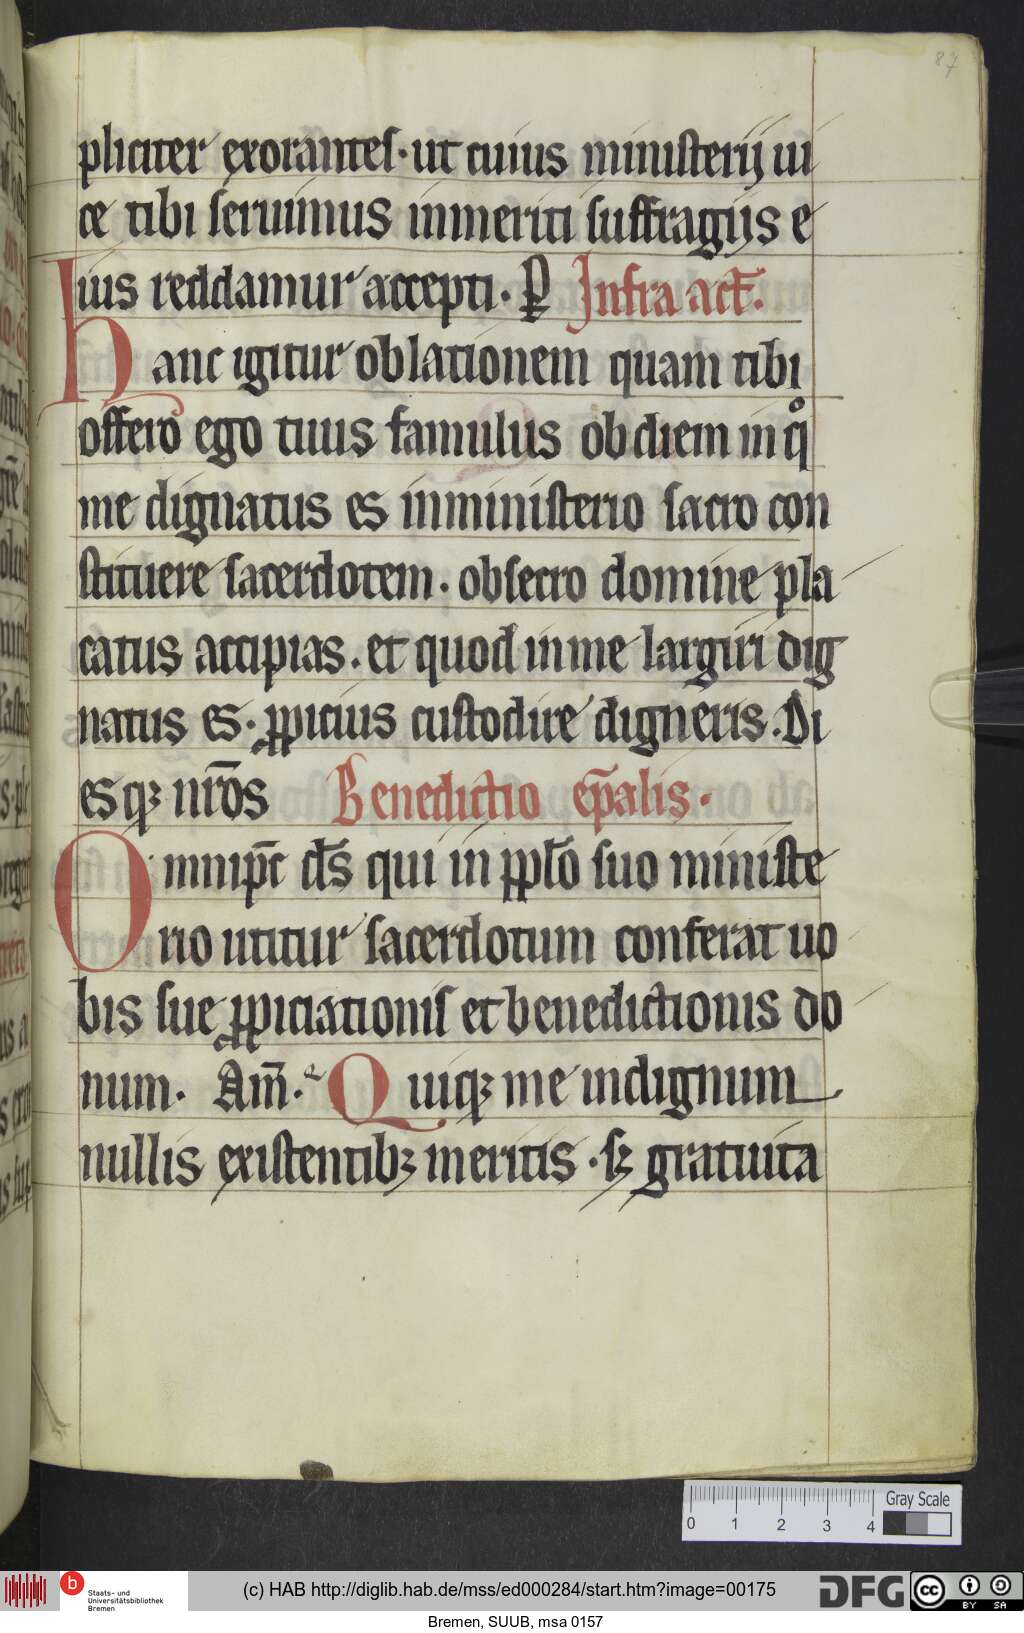 87
pliciter exorantes · ut cuius ministerij ui
ce tibi seruimus inmeriti suffragijs e
ius reddamur accepti · P Infra act̄.
Hanc igitur oblationem quam tibi
offero ego tuus famulus ob diem in qͦ
me dignatus es in ministerio sacro con
stituere sacerdotem · obsecro domine pla
catus accipias · et quod in me largiri dig
natus es · ꝓpicius custodire digneris. Di
esqꝫ nr̄os Benedictio ep̄alis ·
Omnip̄c ds̄ qui in pp̄lo suo ministe
rio utitur sacerdotum conferat uo
bis sue ꝓpiciationis et benedictionis do
num · Am̄ · Quiqꝫ me indignum
nullis existentibꝫ meritis · sꝫ gratuita
Gray Scale
0 1 2 3 4
b
Staats- und
Universitätsbibliothek
Bremen
(c) HAB http://diglib.hab.de/mss/ed000284/start.htm?image=00175
DFG
cc BY SA
Bremen, SUUB, msa 0157